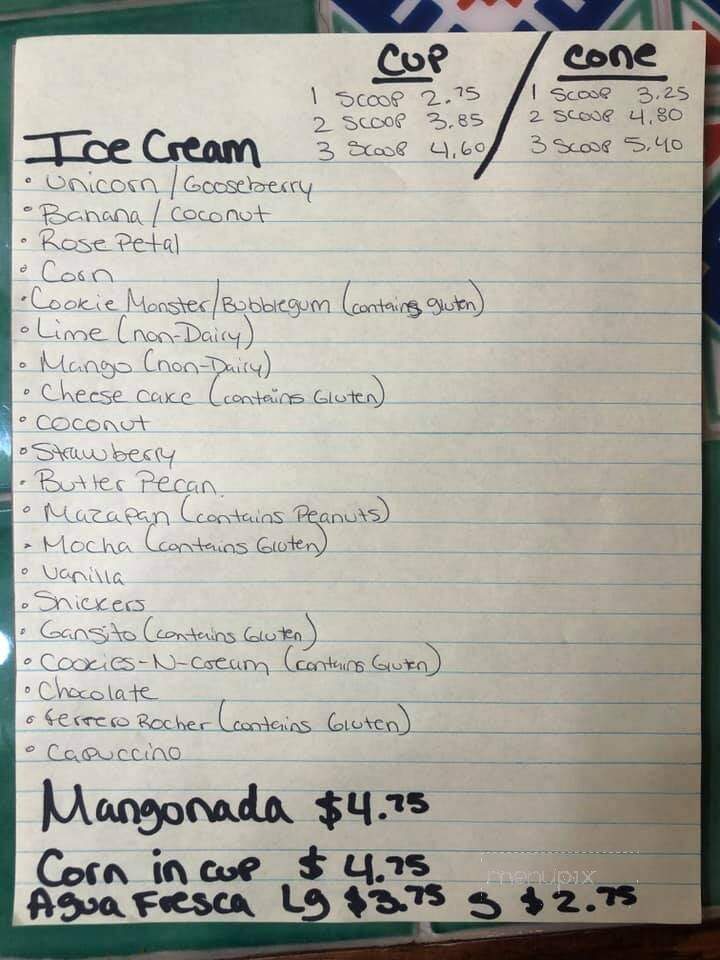 CUP / Cone
1 Scoop 2.75 1 Scoop 3.25
2 Scoop 3.85 2 Scoop 4.80
3 Scoop 4.60 3 Scoop 5.40
Ice Cream
• Unicorn/Gooseberry
• Banana/coconut
• Rose Petal
• Corn
• Cookie Monster/Bubblegum (contains gluten)
• Lime (non-Dairy)
• Mango (non-Dairy)
• Cheese cake (contains Gluten)
• Coconut
• Strawberry
• Butter Pecan
• Mazapan (contains Peanuts)
• Mocha (contains Gluten)
• Vanilla
• Snickers
• Gansito (contains Gluten)
• Cookies-N-Cream (contains Gluten)
• Chocolate
• Ferrero Rocher (contains Gluten)
• Capuccino
Mangonada $4.75
Corn in cup $4.75
Agua Fresca Lg $3.75 S $2.75
menupix